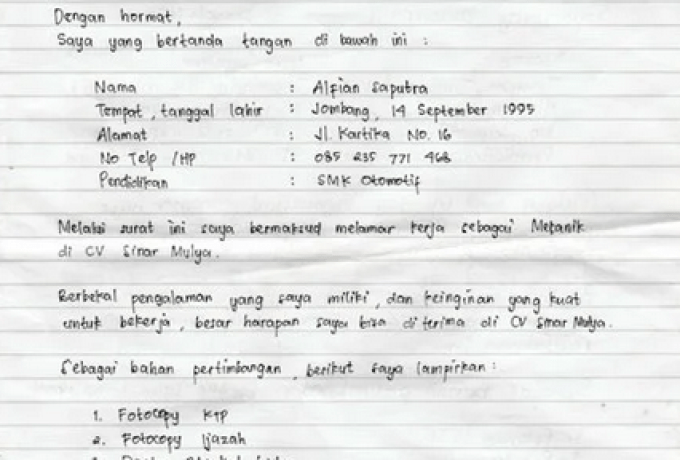 Dengan hormat,
Saya yang bertanda tangan di bawah ini :
Nama : Alfian Saputra
Tempat, tanggal lahir : Jombang, 14 September 1995
Alamat : Jl. Kartika No. 16
No Telp /HP : 085 235 771 468
Pendidikan : SMK Otomotif
Melalui surat ini saya bermaksud melamar kerja sebagai Mekanik
di CV Sinar Mulya.
Berbekal pengalaman yang saya miliki, dan keinginan yang kuat
untuk bekerja, besar harapan saya bisa di terima di CV Sinar Mulya.
Sebagai bahan pertimbangan, berikut saya lampirkan :
1. Fotocopy KTP
2. Fotocopy Ijazah